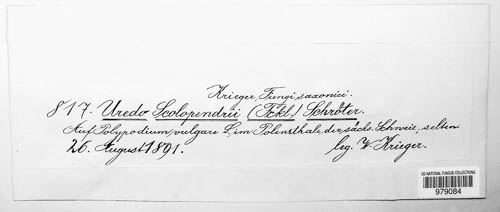 Krieger, Fungi saxonici.
817. Uredo Scolopendrii (Fckl.) Schröter.
Auf Polypodium vulgare L., im Polenzthale der sächs. Schweiz, selten
26. August 1891. leg. W. Krieger.
US NATIONAL FUNGUS COLLECTIONS
979084